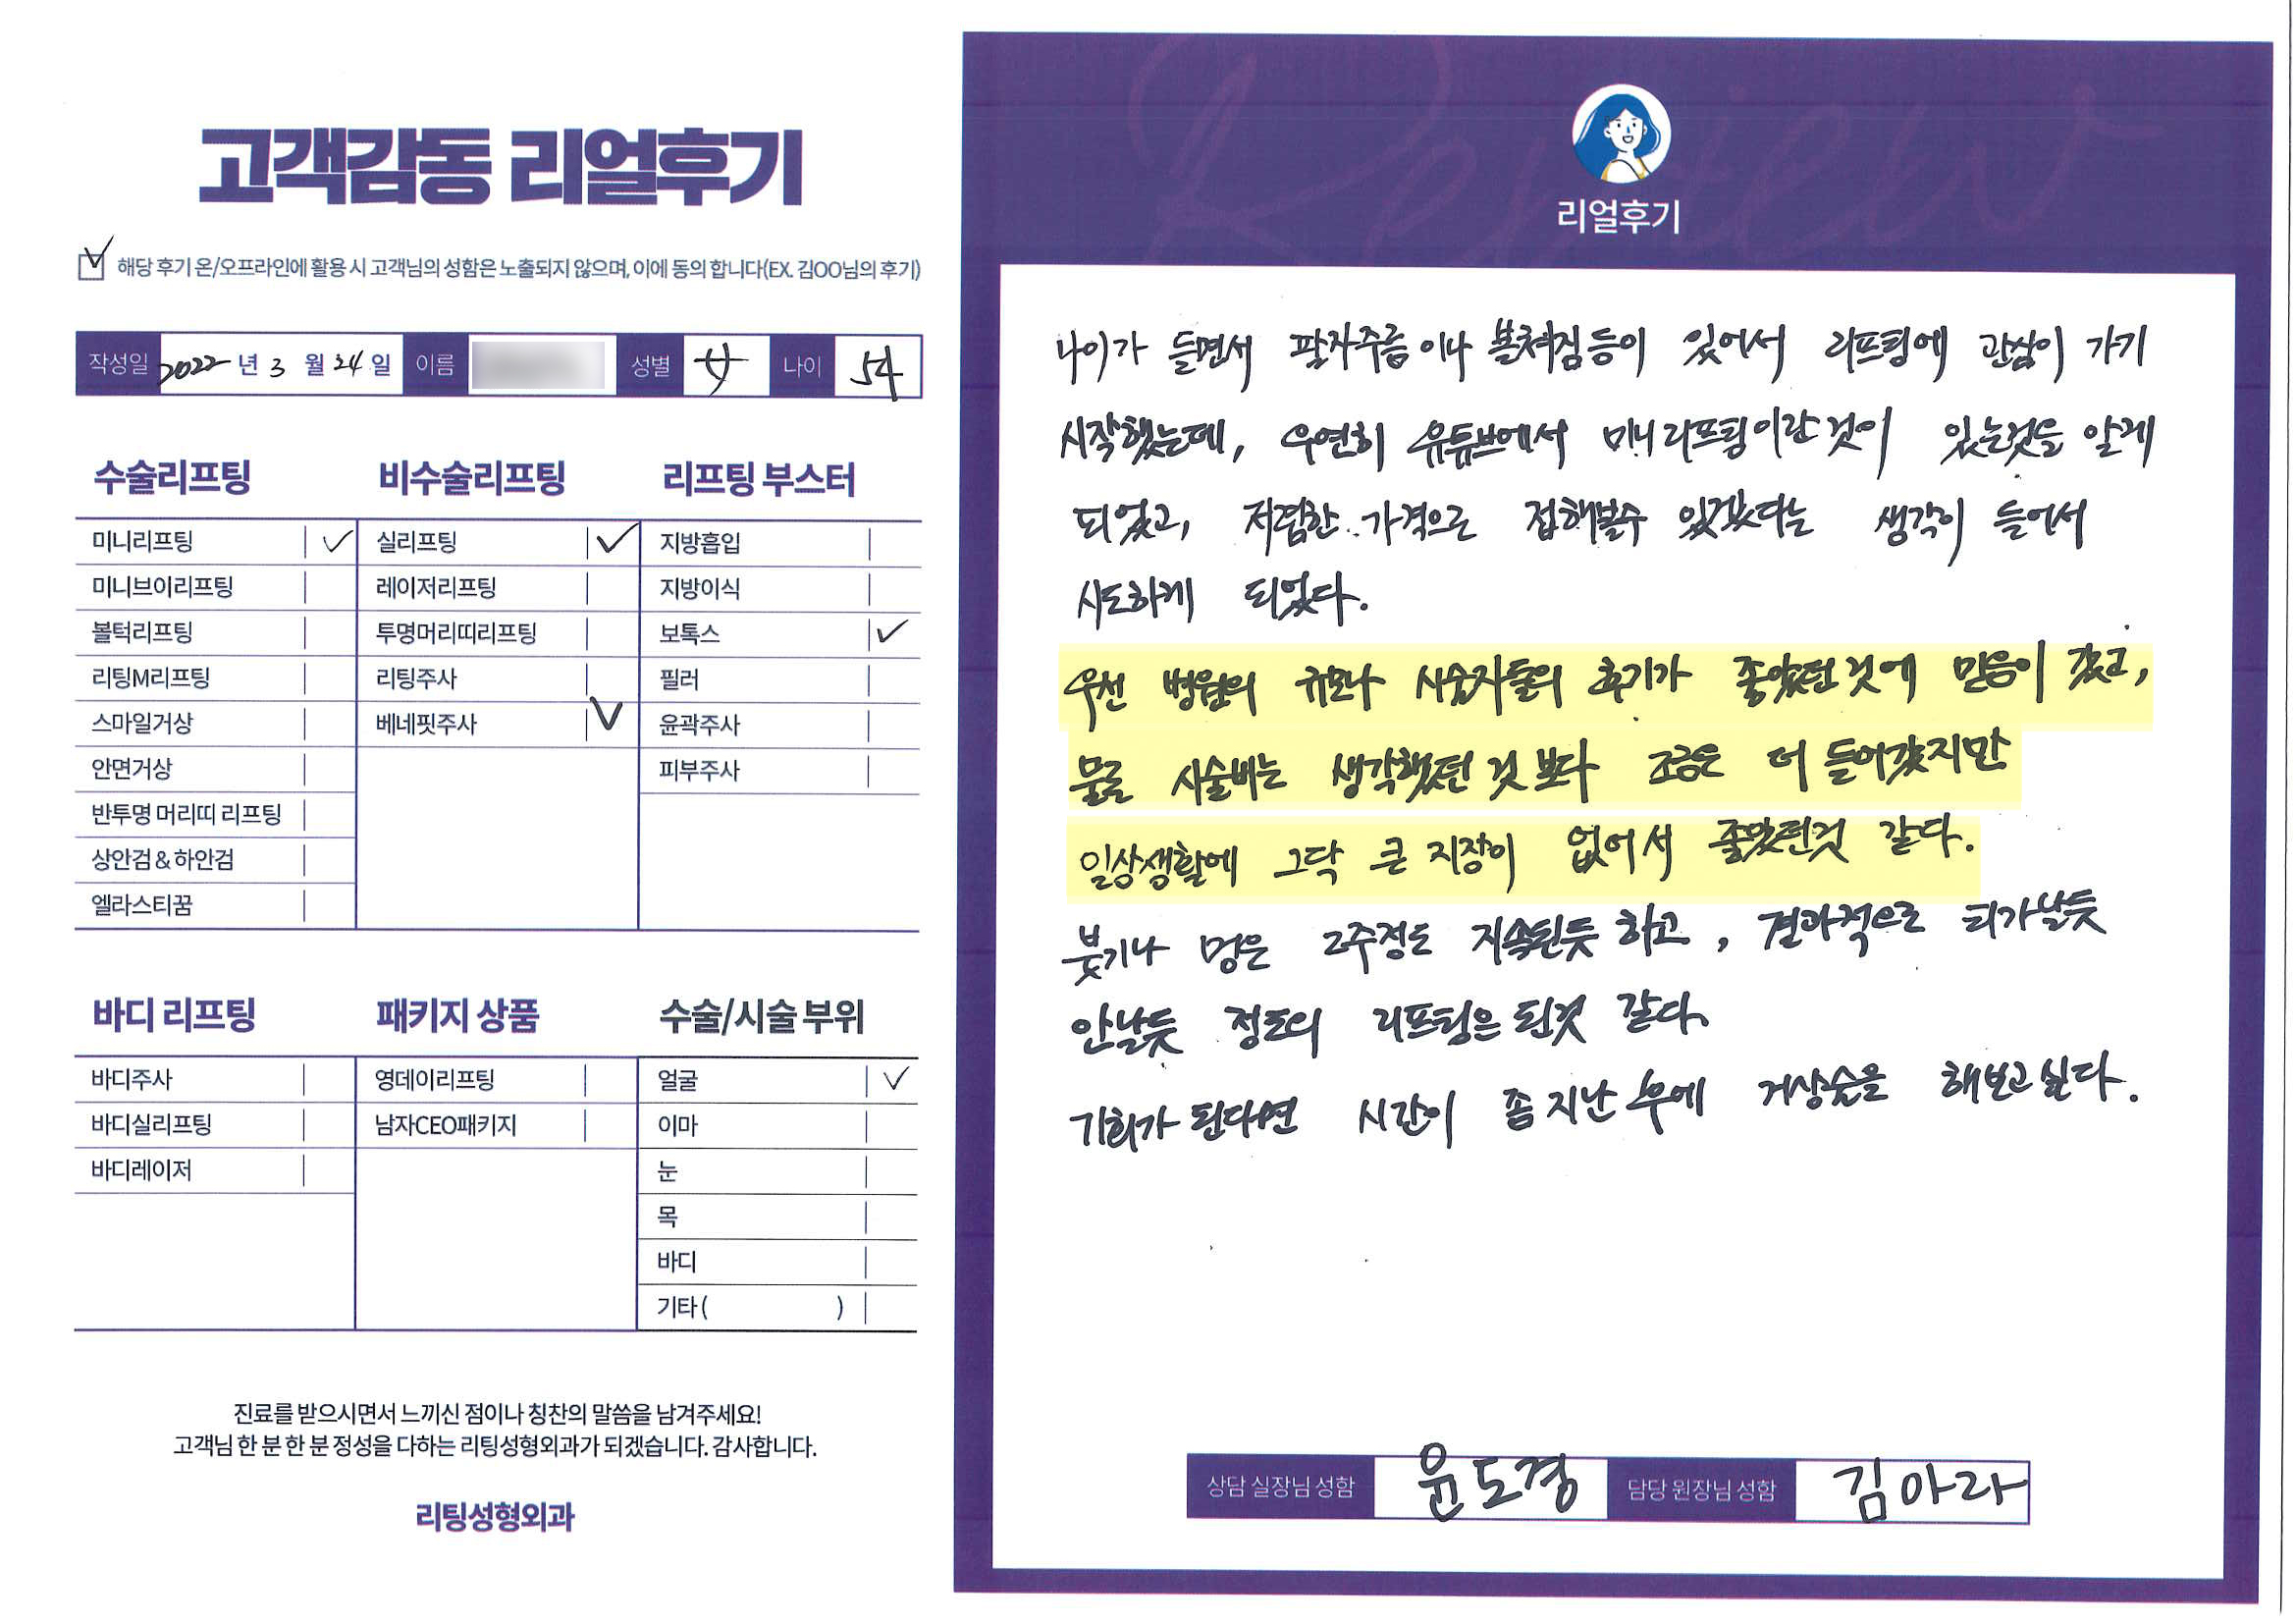 고객감동 리얼후기
해당 후기 온/오프라인에 활용 시 고객님의 성함은 노출되지 않으며, 이에 동의 합니다(EX. 김OO님의 후기)
작성일 2022년 3월 24일 이름 성별 女 나이 54
수술리프팅
미니리프팅
미니브이리프팅
볼턱리프팅
리팅M리프팅
스마일거상
안면거상
반투명 머리띠 리프팅
상안검 & 하안검
엘라스티꿈
비수술리프팅
실리프팅
레이저리프팅
투명머리띠리프팅
리팅주사
베네핏주사
리프팅 부스터
지방흡입
지방이식
보톡스
필러
윤곽주사
피부주사
바디 리프팅
바디주사
바디실리프팅
바디레이저
패키지 상품
영데이리프팅
남자CEO패키지
수술/시술 부위
얼굴
이마
눈
목
바디
기타 ( )
진료를 받으시면서 느끼신 점이나 칭찬의 말씀을 남겨주세요!
고객님 한 분 한 분 정성을 다하는 리팅성형외과가 되겠습니다. 감사합니다.
리팅성형외과
Review
리얼후기
나이가 들면서 팔자주름이나 볼쳐짐등이 있어서 리프팅에 관심이 가기
시작했는데, 우연히 유튜브에서 미니리프팅이란것이 있는것을 알게
되었고, 저렴한 가격으로 접해볼수 있겠다는 생각이 들어서
시도하게 되었다.
우선 병원의 규모나 시술자들의 후기가 좋았던것에 믿음이 갔고,
물론 시술비는 생각했던것보다 조금은 더 들어갔지만
일상생활에 그닥 큰 지장이 없어서 좋았던것 같다.
붓기나 멍은 2주정도 지속된듯 하고, 결과적으로 티가날듯
안날듯 정도의 리프팅은 된것 같다.
기회가 된다면 시간이 좀 지난 후에 거상술을 해보고싶다.
상담 실장님 성함 윤도경 담당 원장님 성함 김아라